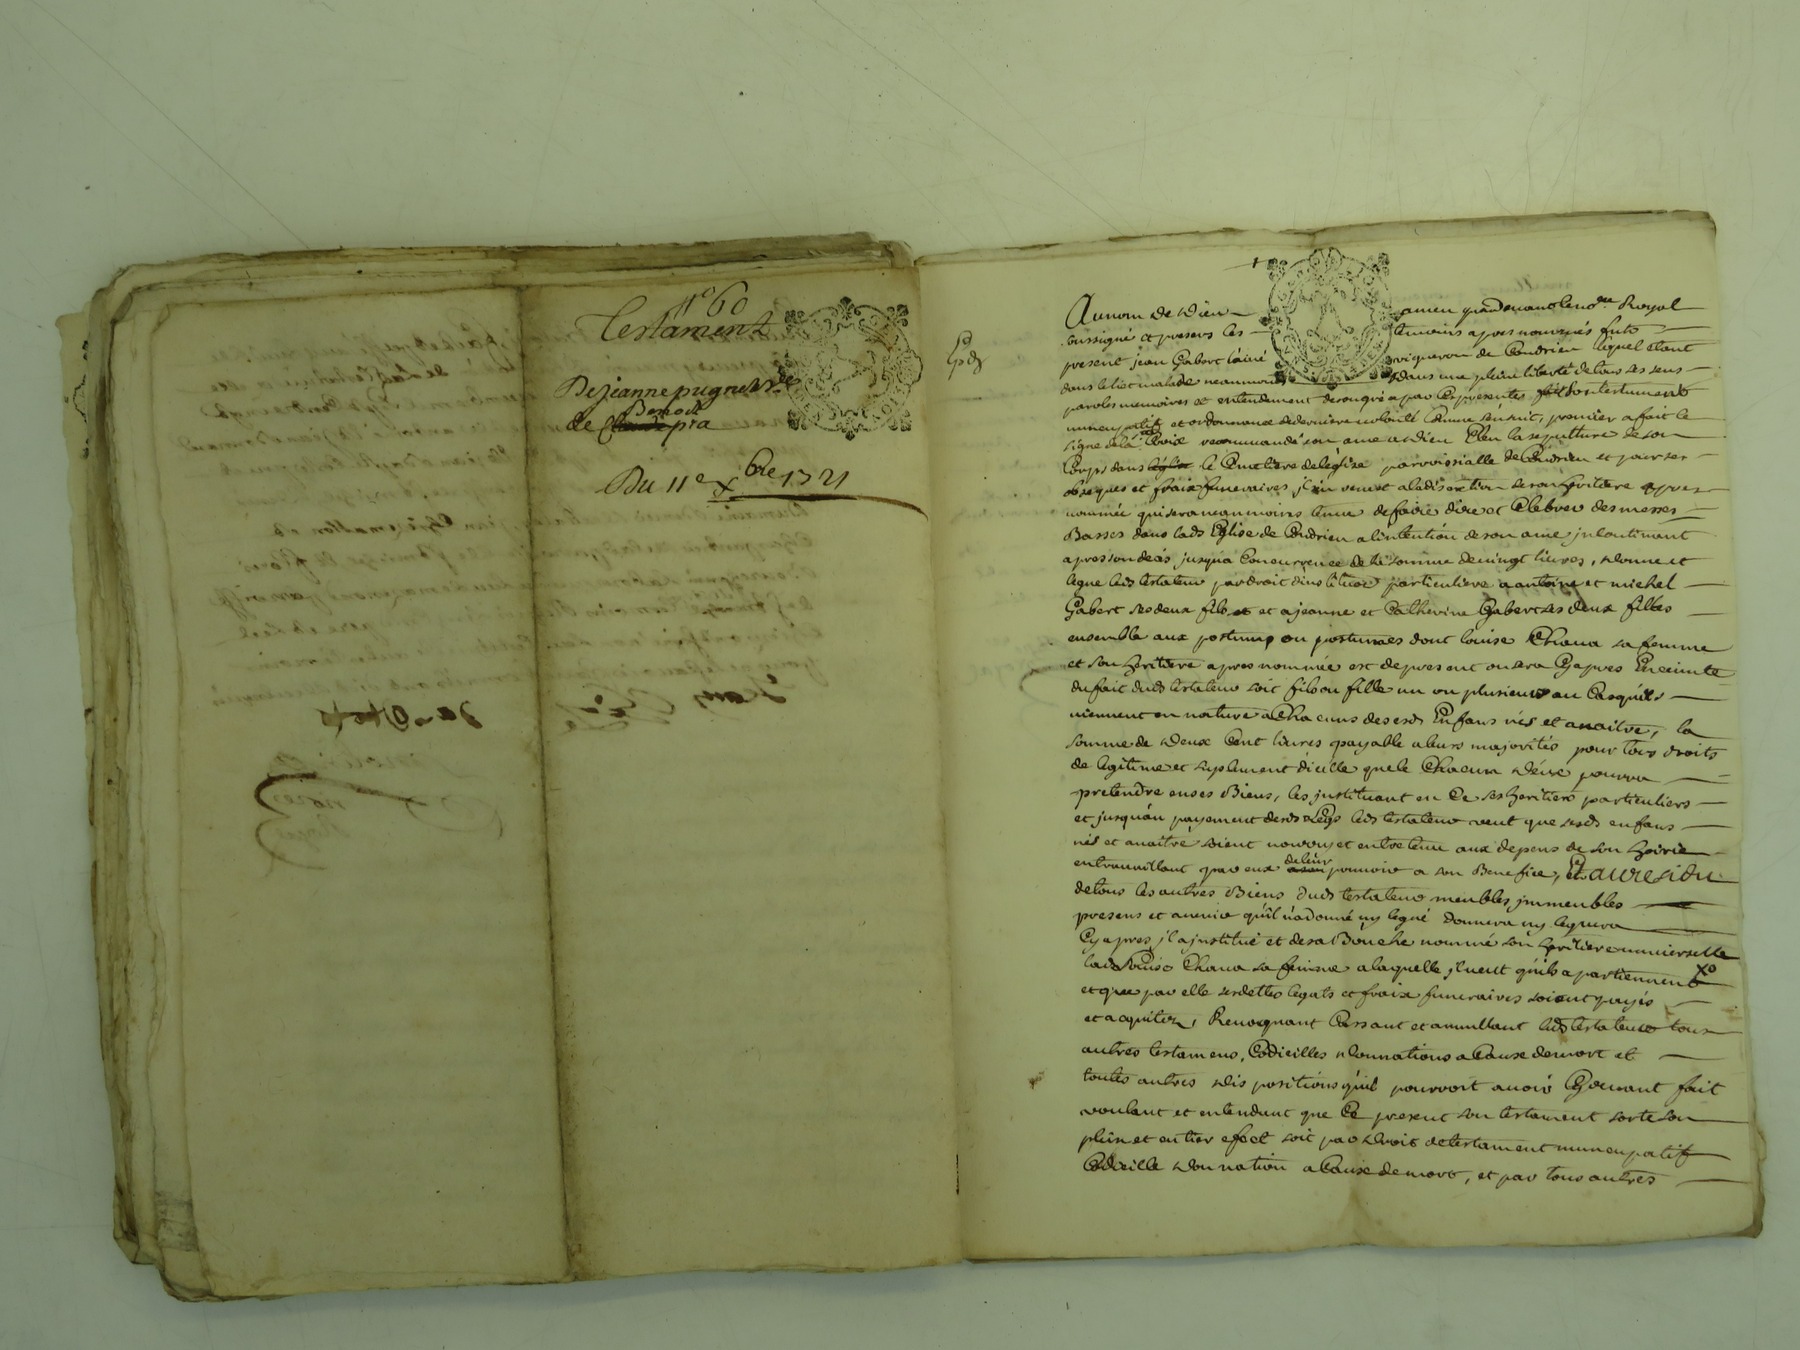 n° 60
Testament
De jeanne pugnet vve
de Claude Benoit pra
Du 11e Xbre 1721
Expd
Au nom de Dieu amen pardevant le no.re Royal
soussigné et presens les temoins apres nommés fut
present jean Gabert lainé vigneron de Condrieu lequel etant
dans le lict malade neanmoins dans une pleine liberté de tous ses sens
paroles memoires et entendement de son gré a par Ces presentes fait son testament
nuncupatif et ordonnance de derniere volonté Comme sensuit, premier a fait le
signe de la Croix recommandé son ame a Dieu Eleu la sepulture de son
Corps dans le Cimetiere de leglise parroissialle de Condrieu et pour ses
obseques et fraix funeraires jl sen remet a la discretion de son heritiere apres
nommée qui sera neanmoins tenue de faire dire et Celebrer des messes
Basses dans lad. Eglise de Condrieu a lintention de son ame jncontinant
apres son deces jusqua Concurrence de la somme de vingt livres, donne et
legue led. testateur par droit dinstitution particuliere a antoine et michel
Gabert ses deux fils et a jeanne et Catherine Gabert ses deux filles
ensemble aux postumes ou postumes dont louise Chava sa femme
et son heritiere apres nommée est de present ou sera Cy apres Enceinte
du fait dud. testateur soit fils ou fille un ou plusieurs au Cas quils
viennent en nature a Chacuns de sesd. Enfans nés et a naitre, la
somme de Deux Cent livres payable a leurs majorités pour tous droits
de legitime et suplement dicelle que le Chacun Deux pourra
pretendre en ses Biens, les jnstituant en Ce ses heritiers particuliers
et jusquau payement desd. Legs led. testateur veut que sesd. enfans
nés et a naitre soient nourry et entretenu aux depens de son hoirie
en travaillant par eux de leur pouvoir a son Benefice, Et au residu
de tous les autres Biens dud. testateur meubles jmmeubles
presens et avenir qu'il n'a donné ny legué donnera ny leguera
Cy apres, jl a jnstitué et de sa Bouche nommé son heritiere universelle
lad. Louise Chava sa femme a laquelle jl veut qu'ils apartiennent
et que par elle ses dettes legats et fraix funeraires soient payés
et acquités, Revoquant Cassant et annullant led. testateur tous
autres testamens, Codicilles Donnations a Cause de mort et
toutes autres dispositions qu'il pourroit avoir Cy devant fait
voulant et entendant que Ce present son testament sorte son
plein et entier effet soit par droit de testament nuncupatif
Codicille Donnation a Cause de mort, et par tous autres